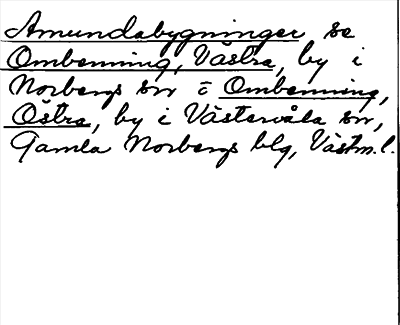 Amundabygninger se
Ombenning, Västra, by i
Norbergs sn o Ombenning,
Östra, by i Västervåla sn,
Gamla Norbergs blg, Västm.l.